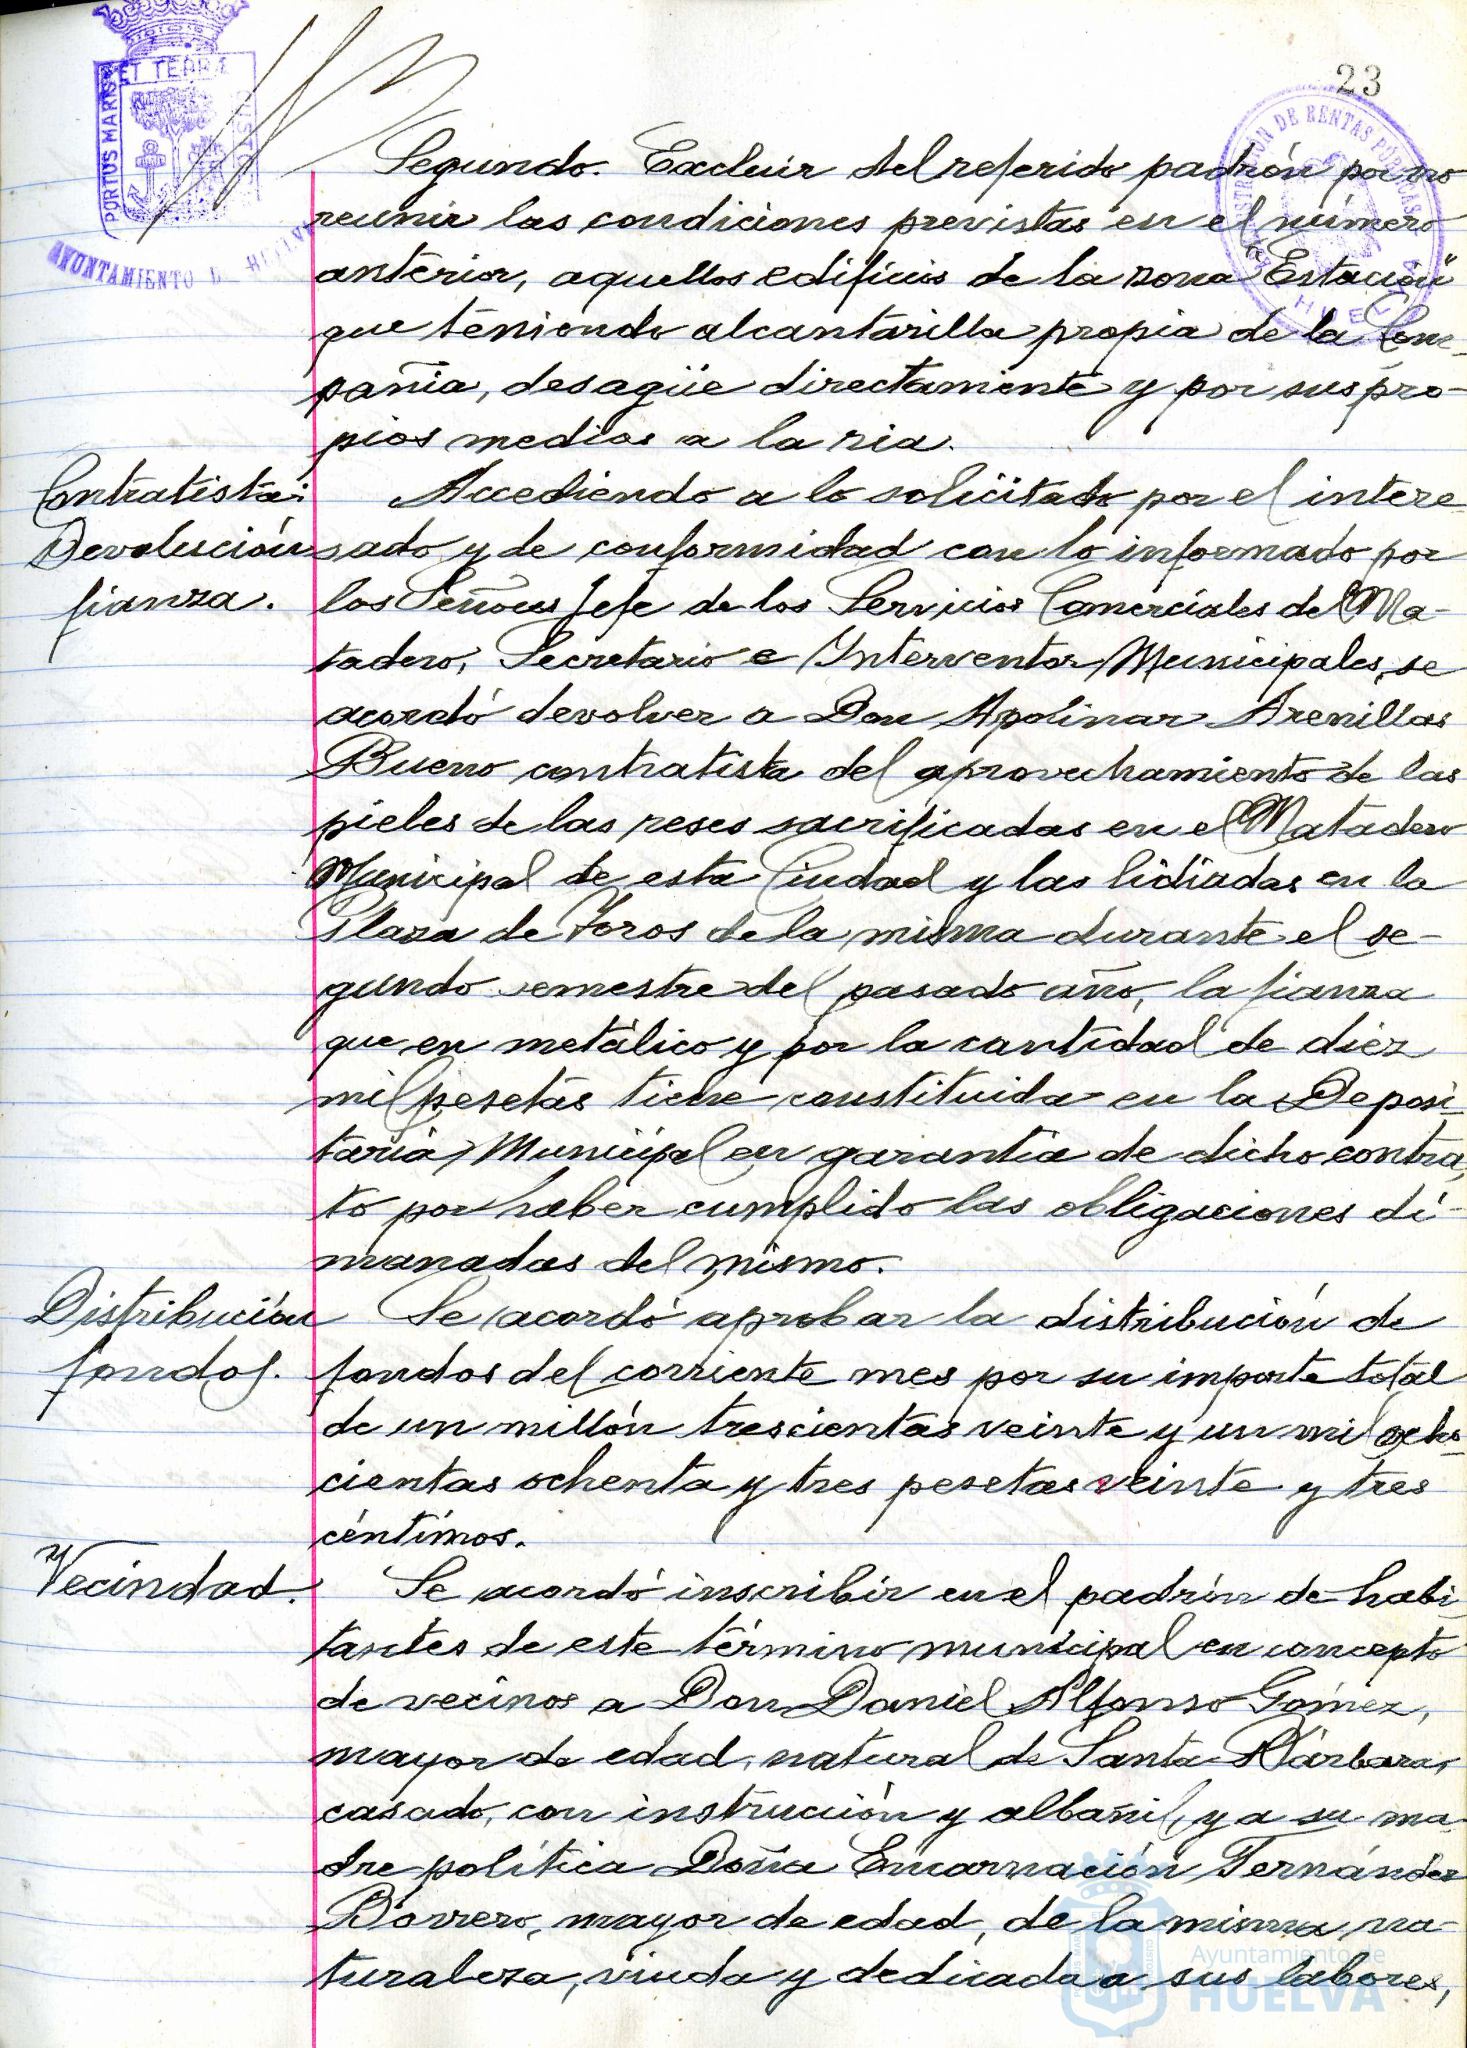 23
PORTUS MARIS ET TERRÆ CUSTO
AYUNTAMIENTO DE HUELVA
ADMINISTRACIÓN DE RENTAS PÚBLICAS
HUELVA
Segundo. Excluir del referido padrón por no
reunir las condiciones previstas en el número
anterior, aquellos edificios de la zona "Estación"
que teniendo alcantarilla propia de la Com-
pañia, desagüe directamente y por sus pro-
pios medios a la ria.
Contratista:
Devolución
fianza.
Accediendo a lo solicitado por el intere-
sado y de conformidad con lo informado por
los Señores Jefe de los Servicios Comerciales del Ma-
tadero, Secretario e Interventor Municipales, se
acordó devolver a Don Apolinar Arenillas
Bueno contratista del aprovechamiento de las
pieles de las reses sacrificadas en el Matadero
Municipal de esta Ciudad y las lidiadas en la
Plaza de Toros de la misma durante el se-
gundo semestre del pasado año, la fianza
que en metálico y por la cantidad de diez
mil pesetas tiene constituida en la Deposi-
taria Municipal en garantia de dicho contra-
to por haber cumplido las obligaciones di-
manadas del mismo.
Distribución
fondos.
Se acordó aprobar la distribución de
fondos del corriente mes por su importe total
de un millón trescientas veinte y un mil ocho-
cientas ochenta y tres pesetas veinte y tres
céntimos.
Vecindad.
Se acordó inscribir en el padrón de habi-
tantes de este término municipal en concepto
de vecinos a Don Daniel Alfonso Gómez,
mayor de edad, natural de Santa Bárbara,
casado, con instrucción y albañil, y a su ma-
dre política Doña Encarnación Fernández
Borrero, mayor de edad, de la misma na-
turaleza, viuda y dedicada a sus labores,
Ayuntamiento de
HUELVA